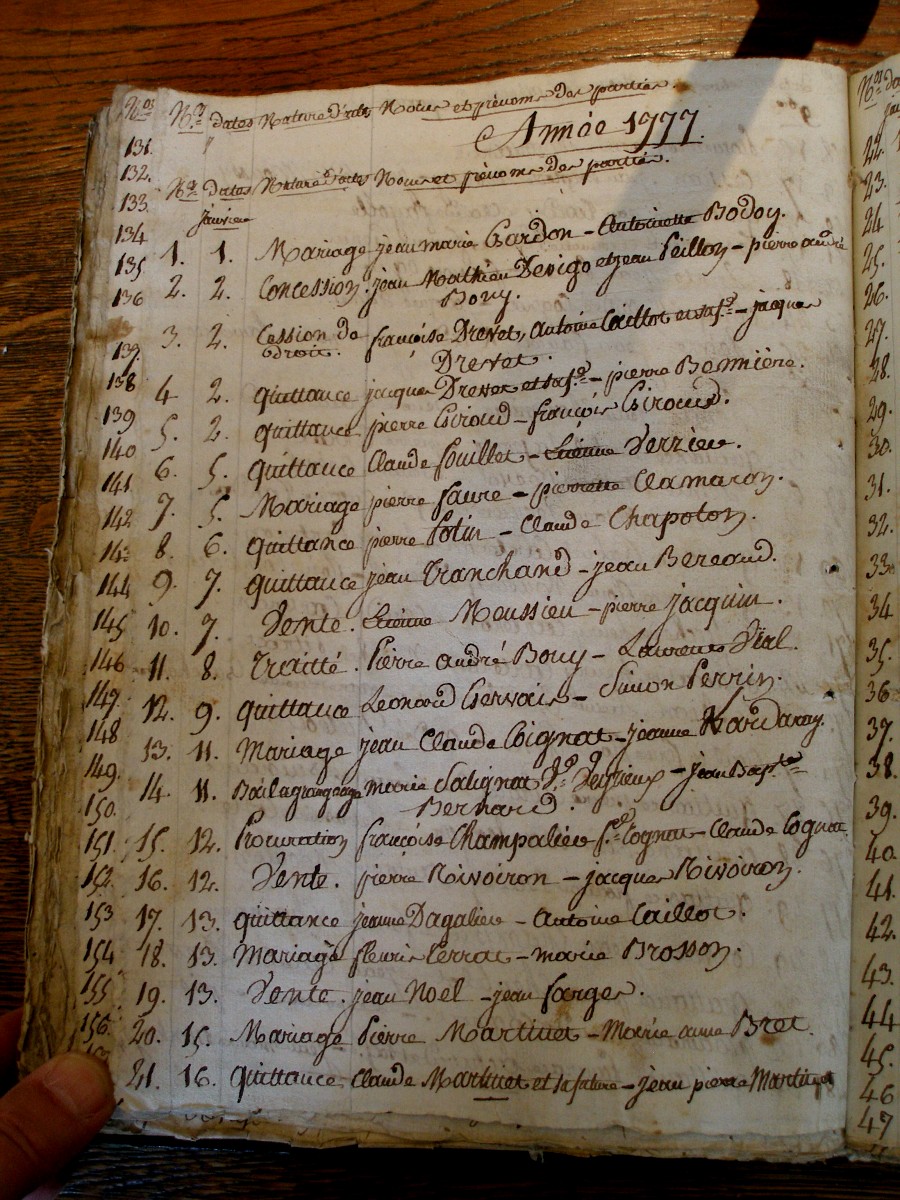 Nos Nos dates Nature d'actes Noms et prénoms des parties
Année 1777.
131.
132.
Nos dates Nature d'actes Noms et prénoms des parties.
133 janvier
134 1. 1. Mariage jean marie Gardon - Antoinette Bodoy.
135 2. 2. Concession. jean Mathieu Devigo et jean Peillon - pierre andré
136 Bouy.
3. 2. Cession de françoise Drevet, Antoine Caillot et sa fe - jacques
137. droit. Drevet.
138 4 2. quittance jacques Drevet et sa fe - pierre Bennière.
139 5. 2. quittance pierre Giroud - françois Giroud.
140 6. 5. quittance Claude fouillet - Etienne Verzieu.
141 7. 5. Mariage pierre faure - pierrette Clamaron.
142 8. 6. quittance pierre Potin - Claude Chapoton.
143 9. 7. quittance jean Tranchand - jean Bereaud.
144 10. 7. Vente. Etienne Moussieu - pierre jacquin.
145 11. 8. Traitté. Pierre andré Bouy - Laurence Vial.
146 12. 9. quittance Leonard Gervais - Simon Perrin.
147 13. 11. Mariage jean Claude Coignat - jeanne Hardaray.
148 14. 11. Bail a grangeage marie Salignat Ve Veyrieux - jean Bapte
149. Bernard.
150. 15. 12. Procuration françoise Champalieu fe Cognat - Claude Cognat.
151 16. 12. Vente. pierre Rivoiron - jacques Rivoiron.
152 17. 13. quittance jeanne Dagalieu - Antoine Caillot.
153 18. 13. Mariage fleurie Perrat - marie Brosson.
154 19. 13. Vente. jean Noel - jean farges.
155 20. 15. Mariage Pierre Martinet - Marie anne Bret.
156. 21. 16. quittance Claude Martinet et sa future - jean pierre Martinet
Nos
22.
23.
24
25.
26.
27.
28.
29.
30.
31.
32.
33.
34
35.
36
37.
38.
39.
40.
41.
42.
43.
44
45.
46
47